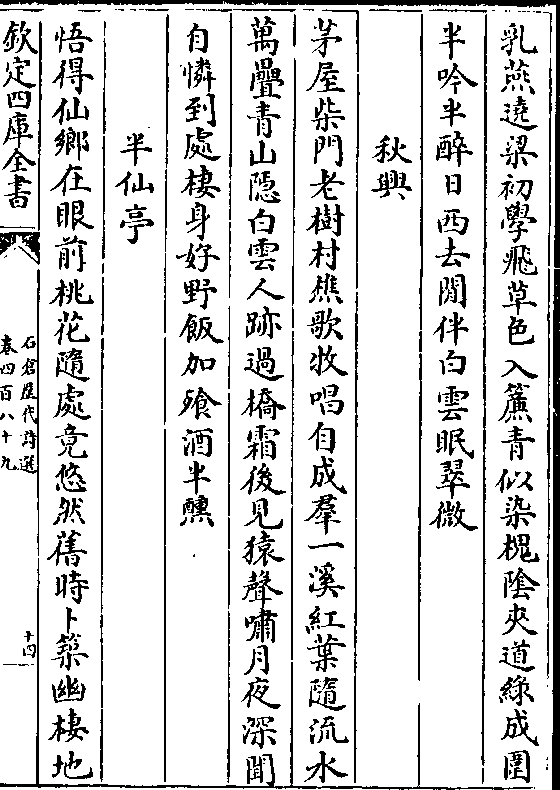 乳燕遶梁初學飛草色入簾青似染槐陰夾道綠成圍
半吟半醉日西去閒伴白雲眠翠微
秋興
茅屋柴門老樹村樵歌牧唱自成羣一溪紅葉隨流水
萬疊青山隱白雲人跡過橋霜後見猿聲嘯月夜深聞
自憐到處棲身好野飯加飱酒半醺
半仙亭
悟得仙鄉在眼前桃花隨處竟悠然舊時卜築幽棲地
欽定四庫全書
石倉歷代詩選
卷四百八十九
十四